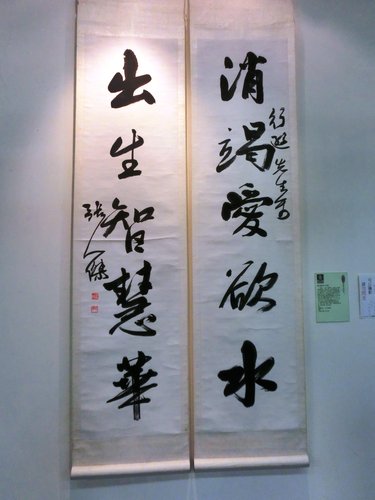 消竭愛欲水
先生
出生智慧華
張人傑